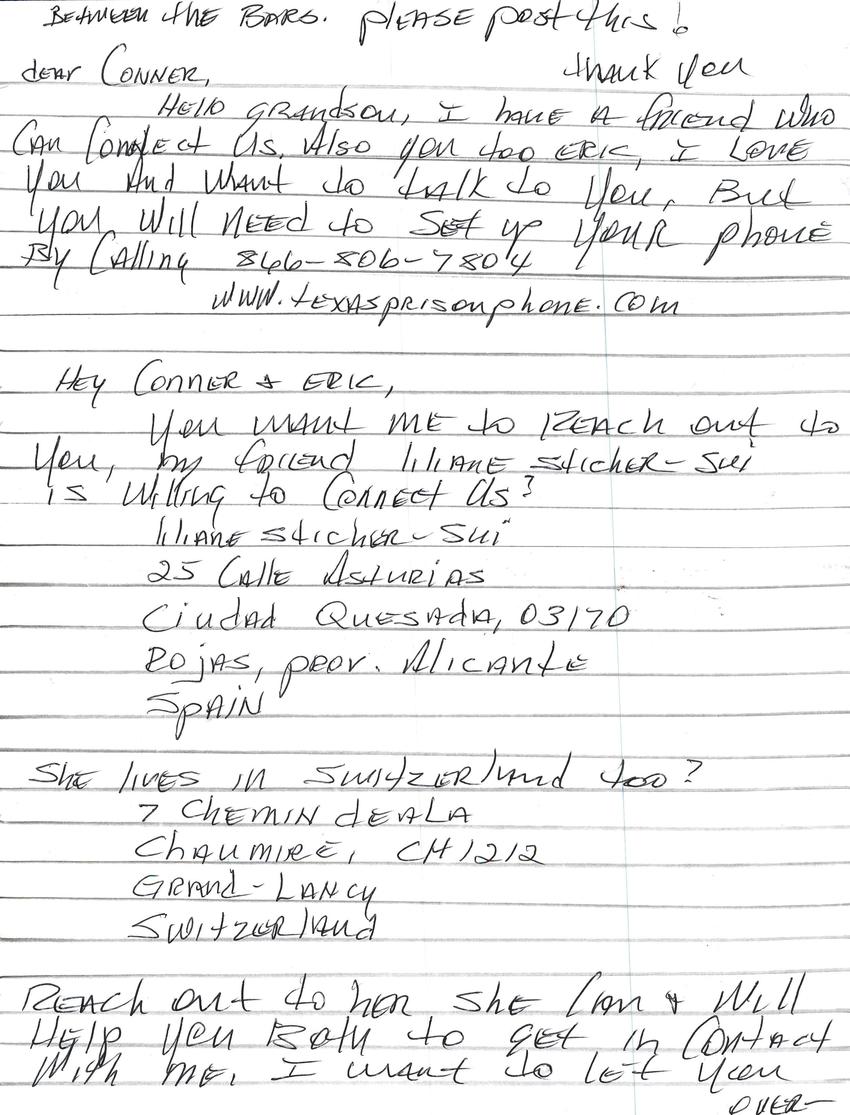 BETWEEN the BARS. PLEASE post this!
dear CONNER, thank you
Hello grandson, I have a friend who
Can Connect Us. Also you too ERIC, I LOVE
you And want to talk to you, But
you will need to set up your phone
By Calling 866-806-7804
www.texasprisonphone.com
Hey Conner & ERIC,
you want ME to REACH out to
you, my friend liliane sticher-sui
is willing to Connect Us?
liliane sticher-sui
25 Calle Asturias
Ciudad Quesada, 03170
Rojas, prov. Alicante
Spain
She lives in Switzerland too?
7 Chemin deALA
Chaumire, CH1212
Grand-Lancy
Switzerland
REACH out to her she Can & Will
Help you Both to get in Contact
With me. I want to let you
OVER-